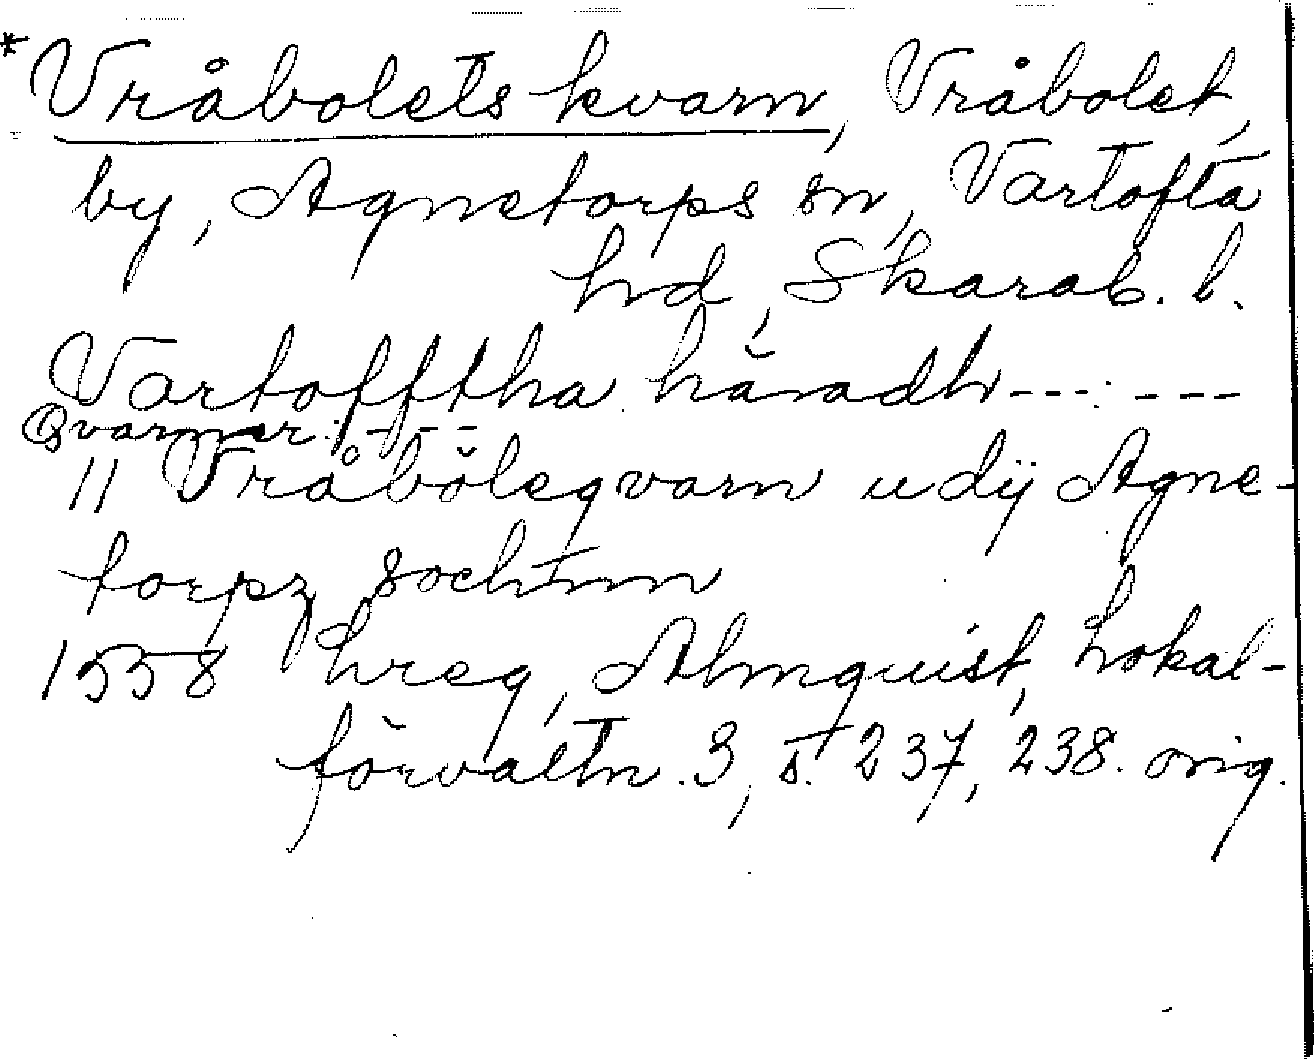 *Vråbolets kvarn, Vråbolet,
by, Agnetorps sn, Vartofta
hd, Skarab. l.
Vartofftha häradh---:---
Qvarner:---
11 Vråbölesqvarn udij Agne-
torpz sochnn
1558 hreg, Almquist, Lokal-
förvaltn. 3, s. 237, 238. orig.